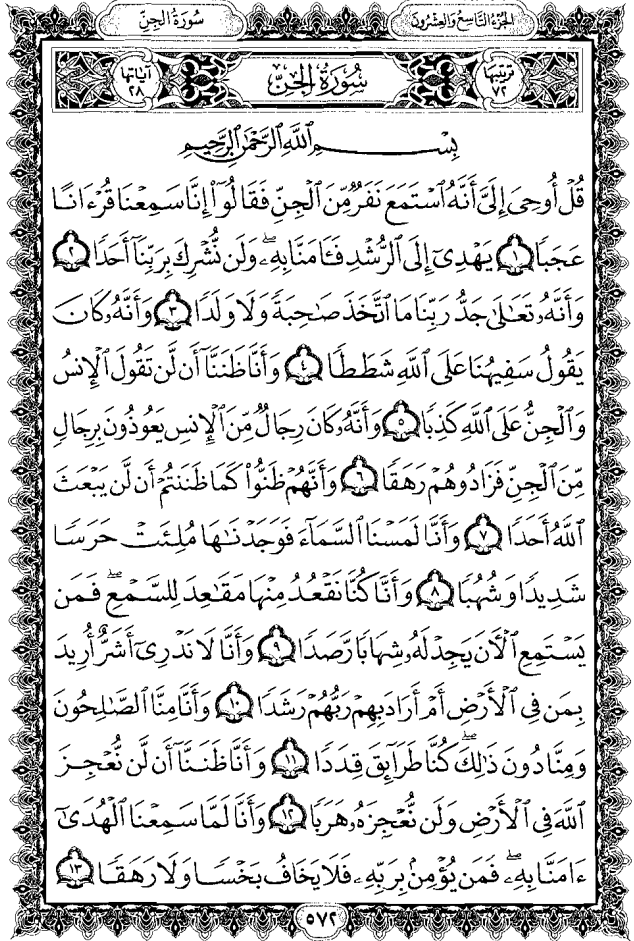 سُورَةُ الجِنّ
الجُزْءُ التَّاسِعُ وَالعِشْرُونَ
ترتيبها ٧٢
سُورَةُ الجِنّ
آياتها ٢٨
بِسْمِ ٱللَّهِ ٱلرَّحْمَٰنِ ٱلرَّحِيمِ
قُلْ أُوحِىَ إِلَىَّ أَنَّهُ ٱسْتَمَعَ نَفَرٌ مِّنَ ٱلْجِنِّ فَقَالُوٓا۟ إِنَّا سَمِعْنَا قُرْءَانًا
عَجَبًا ١ يَهْدِىٓ إِلَى ٱلرُّشْدِ فَـَٔامَنَّا بِهِۦ ۖ وَلَن نُّشْرِكَ بِرَبِّنَآ أَحَدًا ٢
وَأَنَّهُۥ تَعَٰلَىٰ جَدُّ رَبِّنَا مَا ٱتَّخَذَ صَٰحِبَةً وَلَا وَلَدًا ٣ وَأَنَّهُۥ كَانَ
يَقُولُ سَفِيهُنَا عَلَى ٱللَّهِ شَطَطًا ٤ وَأَنَّا ظَنَنَّآ أَن لَّن تَقُولَ ٱلْإِنسُ
وَٱلْجِنُّ عَلَى ٱللَّهِ كَذِبًا ٥ وَأَنَّهُۥ كَانَ رِجَالٌ مِّنَ ٱلْإِنسِ يَعُوذُونَ بِرِجَالٍ
مِّنَ ٱلْجِنِّ فَزَادُوهُمْ رَهَقًا ٦ وَأَنَّهُمْ ظَنُّوا۟ كَمَا ظَنَنتُمْ أَن لَّن يَبْعَثَ
ٱللَّهُ أَحَدًا ٧ وَأَنَّا لَمَسْنَا ٱلسَّمَآءَ فَوَجَدْنَٰهَا مُلِئَتْ حَرَسًا
شَدِيدًا وَشُهُبًا ٨ وَأَنَّا كُنَّا نَقْعُدُ مِنْهَا مَقَٰعِدَ لِلسَّمْعِ ۖ فَمَن
يَسْتَمِعِ ٱلْـَٔانَ يَجِدْ لَهُۥ شِهَابًا رَّصَدًا ٩ وَأَنَّا لَا نَدْرِىٓ أَشَرٌّ أُرِيدَ
بِمَن فِى ٱلْأَرْضِ أَمْ أَرَادَ بِهِمْ رَبُّهُمْ رَشَدًا ١٠ وَأَنَّا مِنَّا ٱلصَّٰلِحُونَ
وَمِنَّا دُونَ ذَٰلِكَ ۖ كُنَّا طَرَآئِقَ قِدَدًا ١١ وَأَنَّا ظَنَنَّآ أَن لَّن نُّعْجِزَ
ٱللَّهَ فِى ٱلْأَرْضِ وَلَن نُّعْجِزَهُۥ هَرَبًا ١٢ وَأَنَّا لَمَّا سَمِعْنَا ٱلْهُدَىٰٓ
ءَامَنَّا بِهِۦ ۖ فَمَن يُؤْمِنۢ بِرَبِّهِۦ فَلَا يَخَافُ بَخْسًا وَلَا رَهَقًا ١٣
٥٧٢